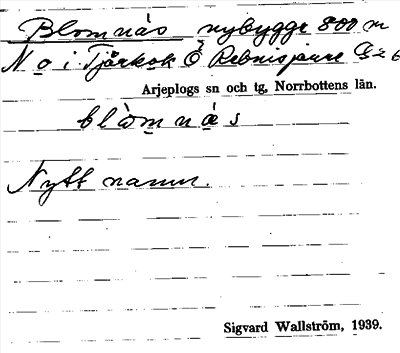 Blomnäs nybygge 800 m
N o i Tjärkok Ö Rebnisjaure
Arjeplogs sn och tg, Norrbottens län.
blòmnä́s
Nytt namn.
Sigvard Wallström, 1939.